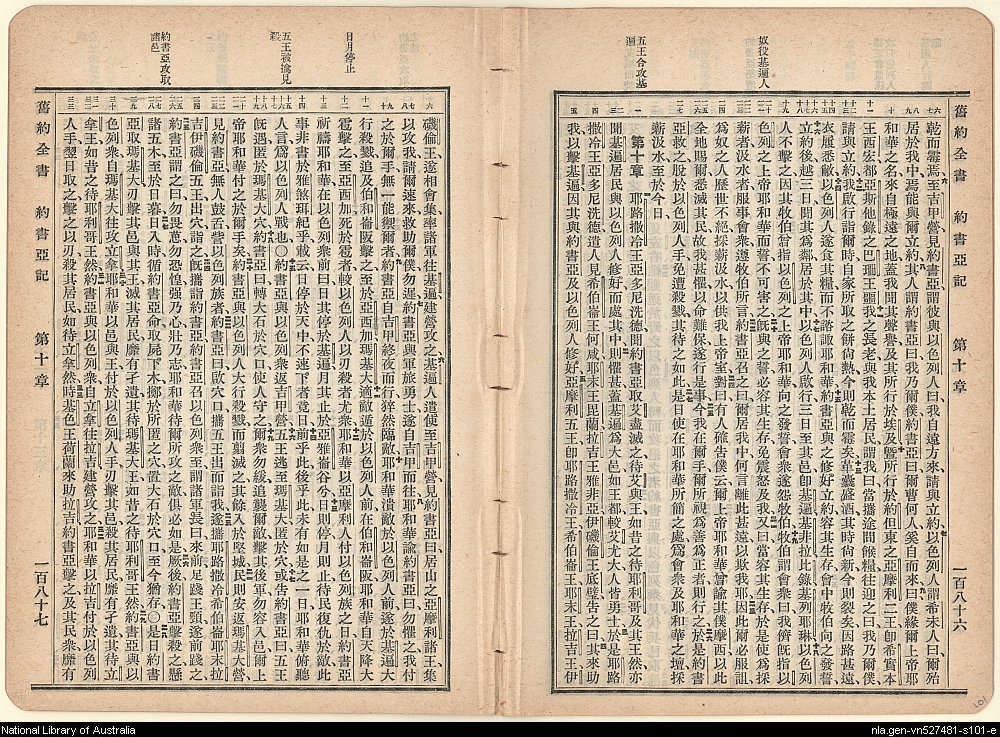 奴役基遍人
五王合攻基遍
舊約全書 約書亞記 第十章 一百八十六
乾而霉焉至吉甲營見約書亞謂彼與以色列人曰我自遠方來請與立約以色列人謂希未人曰爾殆
居於我中焉能與爾立約其人謂約書亞曰我乃爾僕約書亞曰爾曹何人奚自而來曰僕緣爾上帝耶
和華之名來自極遠之地蓋我聞其聲譽及其所行於埃及曁所行於約但東之亞摩利二王卽希實本
王西宏都亞斯他錄之巴珊王噩我之長老與我本土居民謂我曰當攜途間餱糧往迎之曰我乃爾僕
請與立約我啟行詣爾時自家所取之餅尚熱今則乾而霉矣革囊盛酒其時尚新今則裂矣因路甚遠
衣履悉敝以色列人遂食其糧而不諮諏耶和華約書亞與之修好立約容其生存會中牧伯向之發誓
立約後越三日聞其爲鄰居於其中以色列人啟行三日至其邑卽基遍基非拉比錄基列耶琳以色列
人不擊之因其牧伯嘗指以色列之上帝耶和華向之發誓會衆遂怨牧伯牧伯謂會衆曰我儕旣指以
色列之上帝耶和華而誓不可害之旣與之誓必容其生存免震怒及我又曰當容其生存於是使爲採
薪者汲水者服事會衆遵牧伯所言約書亞召之曰爾居我中何言離此甚遠以欺我曰爾因此必服詛
爲奴之人歷世不絕採薪汲水以供我上帝室對曰有人確告僕云爾上帝耶和華曾諭其僕摩西以此
全地賜爾悉滅其民故我甚懼以命難保遂行是事今我在爾手爾所視爲善爲正者行之於是約書
亞救之脫於以色列人手免遭殺戮其待之如此是日使在耶和華所簡之處爲會衆及耶和華之壇採
薪汲水至於今日
第十章 耶路撒冷王亞多尼洗德聞約書亞取艾盡滅之待艾與王如昔之待耶利哥及其王然亦
聞基遍居民與以色列人修好而處其中則懼甚蓋基遍爲大邑如王都較艾尤大人皆勇士於是耶路
撒冷王亞多尼洗德遣人見希伯崙王何咸耶末王毘蘭拉吉王雅非亞伊磯倫王底璧告之曰其來助
我以擊基遍因其與約書亞及以色列人修好亞摩利五王卽耶路撒冷王希伯崙王耶末王拉吉王伊
日月停止
五王被擒見殺
約書亞攻取諸邑
磯倫王遂相會集率諸軍往基遍建營攻之基遍人遣使至吉甲營見約書亞曰居山之亞摩利諸王集
以攻我請爾速來救助爾僕勿遲約書亞與軍旅勇士遂自吉甲而往耶和華諭約書亞曰勿懼之我付
之於爾手無一能禦爾者約書亞自吉甲終夜而行猝然臨敵耶和華潰敵於以色列人前遂於基遍大
行殺戮追及伯和崙阪擊之至於亞西加瑪基大適敵遁於以色列人前在伯和崙阪耶和華自天降大
雹擊之至亞西加死於雹者較以色列人以刃殺者尤衆耶和華以亞摩利人付以色列族之日約書亞
祈禱耶和華在以色列衆前曰日其停於基遍月其止於亞雅崙谷兮日則停月則止待民復仇於敵此
事非書於雅煞珥記乎載云日停於天中不速下者竟日前乎此後乎此未有如是之一日耶和華俯聽
人言爲以色列人戰也〇約書亞與以色列衆返吉甲營五王逃至瑪基大匿於穴或告約書亞曰五王
旣遇匿於瑪基大穴約書亞曰轉大石於穴口使人守之爾衆勿緩追襲爾敵擊其後軍勿容入邑爾上
帝耶和華付之於爾手矣約書亞與以色列人大行殺戮而翦滅之其餘入於堅城民則安返瑪基大營
見約書亞無人鼓舌訾以色列族者約書亞曰啟穴口攜五王出而詣我遂攜耶路撒冷希伯崙耶末拉
吉伊磯倫五王出穴詣之旣攜詣約書亞約書亞召以色列衆至謂諸軍長曰來前足踐王頸遂前踐之
約書亞謂之曰勿畏葸勿恐惶强乃心壯乃志耶和華待爾所攻之敵俱必如是厥後約書亞擊殺之懸
諸五木至於日暮日入時循約書亞命取屍下木擲於所匿之穴置大石於穴口至今猶存〇是日約書
亞取瑪基大刃擊其邑與其王滅其居民靡有孑遺其待瑪基大王如昔之待耶利哥王然約書亞與以
色列衆自瑪基大往攻立拿耶和華以邑與王付於以色列人手刃擊其邑殺其居民靡有孑遺其待立
拿王如昔之待耶利哥王然約書亞與以色列衆自立拿往拉吉建營攻之耶和華以拉吉付於以色列
人手翌日取之擊之以刃殺其居民如待立拿然時基色王荷蘭來助拉吉約書亞擊之及其民衆靡有
舊約全書 約書亞記 第十章 一百八十七
National Library of Australia
nla.gen-vn527481-s101-e